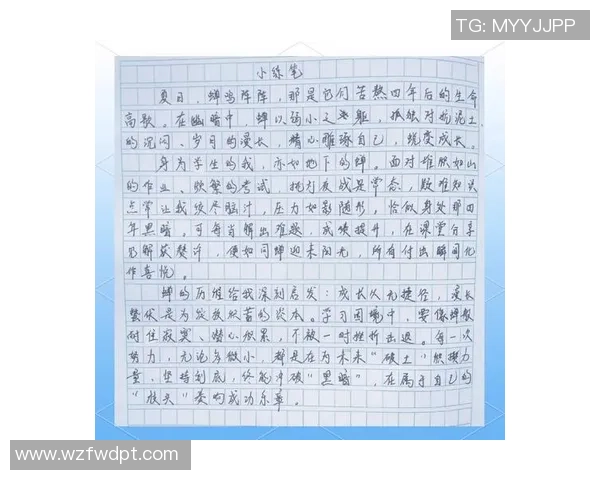 TG: MYYJJPP
小练笔
夏日，蝉鸣阵阵，那是它们苦熬四年后的生命
高歌。在幽暗中，蝉以弱小之躯，孤独对抗泥土
的沉闷、岁月的漫长，精心雕琢自己，筑变成长。
身为学生的我，亦如地下的蝉。面对堆积如山
的作业、频繁的考试，挑灯夜战是常态，疑难知识
点常让我绞尽脑汁，压力如影随形，恰似身处那四
年黑暗。可每当解出难题，成绩提升，在课堂分享
见解获赞许，便如同蝉迎来阳光，所有付出瞬间化
作喜悦。
蝉的历程给我深刻启发：成长从无捷径，漫长
蛰伏是为绽放积蓄的资本。学习困境中，要像蝉般
耐住寂寞、潜心积累，不被一时挫折击退。每一次
努力，无论多微小，都是在为未来"破土"积攒力
量，坚持到底，终能冲破"黑暗"，在属于自己的
"枝头"奏响成功乐章。
www.wzfwdpt.com